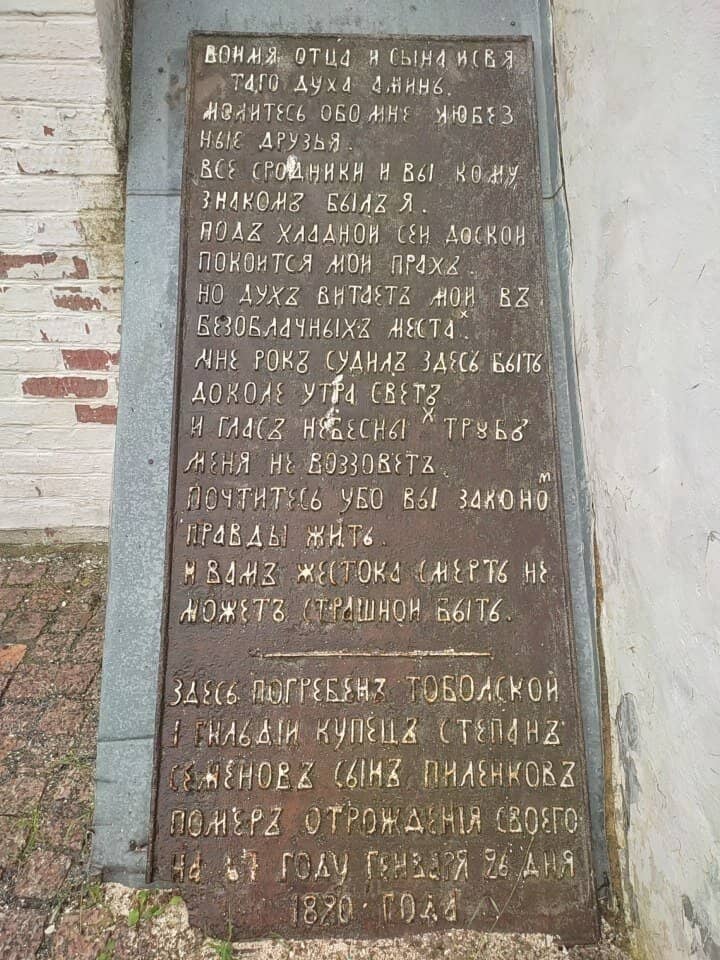 ВОИМЯ ОТЦА И СЫНА ИСВЯ
ТАГО ДУХА АМИНЬ.
МОЛИТЕСЬ ОБО МНЕ ЛЮБЕЗ
НЫЕ ДРУЗЬЯ.
ВСЕ СРОДНИКИ И ВЫ КОМУ
ЗНАКОМЪ БЫЛЪ Я.
ПОДЪ ХЛАДНОЙ СЕЙ ДОСКОЙ
ПОКОИТСЯ МОЙ ПРАХЪ.
НО ДУХЪ ВИТАЕТЪ МОЙ ВЪ
БЕЗОБЛАЧНЫХЪ МЕСТАХ.
МНЕ РОКЪ СУДИЛЪ ЗДЕСЬ БЫТЬ
ДОКОЛЕ УТРА СВЕТЪ
И ГЛАСЪ НЕБЕСНЫХ ТРУБЪ
МЕНЯ НЕ ВОЗЗОВЕТЪ.
ПОЧТИТЕСЬ УБО ВЫ ЗАКОНОМ
ПРАВДЫ ЖИТЬ.
И ВАМЪ ЖЕСТОКА СМЕРТЬ НЕ
МОЖЕТЪ СТРАШНОЙ БЫТЬ.
ЗДЕСЬ ПОГРЕБЕНЪ ТОБОЛСКОЙ
1 ГИЛЬДІИ КУПЕЦЪ СТЕПАНЪ
СЕМЕНОВЪ СЫНЪ ПИЛЕНКОВЪ
ПОМЕРЪ ОТРОЖДЕНІЯ СВОЕГО
НА ГОДУ ГЕНВАРЯ 26 ДНЯ
1820 ГОДА